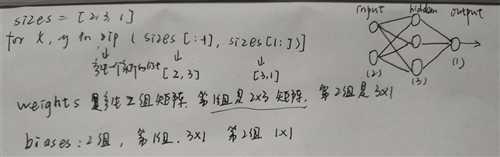 sizes = [2, 3, 1]
for x, y in zip ( sizes [:-1], sizes [1:])]
[2, 3] [3,1]
input hidden output
(2) (3) (1)
weights 是 二组矩阵. 第1组是 2x3 矩阵. 第2组是 3x1
biases : 2组, 第1组. 3x1 第2组 1x1